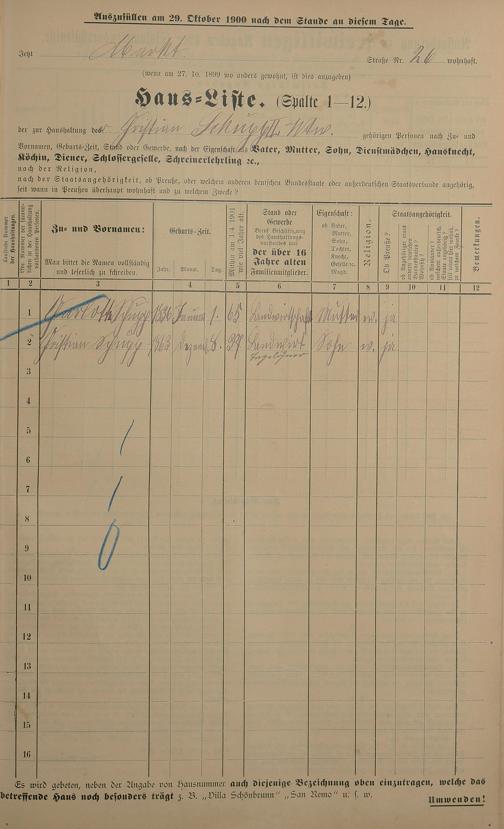 Auszufüllen am 29. Oktober 1900 nach dem Stande an diesem Tage.
Jetzt Markt Straße Nr. 26 wohnhaft.
(wenn am 27. 10. 1899 wo anders gewohnt, ist dies anzugeben)
Haus-Liste. (Spalte 1—12.)
der zur Haushaltung des Christian Schupp II. Wtw. gehörigen Personen nach Zu- und
Vornamen, Geburts-Zeit, Stand oder Gewerbe, nach der Eigenschaft als Vater, Mutter, Sohn, Dienstmädchen, Hausknecht,
Köchin, Diener, Schlossergeselle, Schreinerlehrling ec.,
nach der Religion,
nach der Staatsangehörigkeit, ob Preuße, oder welchem anderen deutschen Bundesstaate oder außerdeutschen Staatsverbande angehörig,
seit wann in Preußen überhaupt wohnhaft und zu welchem Zwecke?
Zu- und Vornamen:
Man bittet die Namen vollständig
und leserlich zu schreiben.
Geburts-Zeit.
Jahr. Monat. Tag.
Mithin am 1/4 1901
wie viel Jahre alt.
Stand oder
Gewerbe
der über 16
Jahre alten
Familienmitglieder.
Eigenschaft:
ob Vater,
Mutter,
Sohn,
Tochter,
Knecht,
Geselle ec.
Magd.
Religion.
Ob Preuße?
Staatsangehörigkeit.
Bemerkungen.
1 2 3 4 5 6 7 8 9 10 11 12
1 Schupp 1836 Januar 1. 65 Landwirtschaft Mutter ev. ja
2 Christian Schupp 1863 Dezemb 8. 37 Landwirt Sohn ev. ja
Tagelöhner
3
4
5
6
7
8
9
10
11
12
13
14
15
16
Es wird gebeten, neben der Angabe von Hausnummer auch diejenige Bezeichnung oben einzutragen, welche das
betreffende Haus noch besonders trägt z. B. „Villa Schönbrunn" „San Remo" u. s. w.
Umwenden!